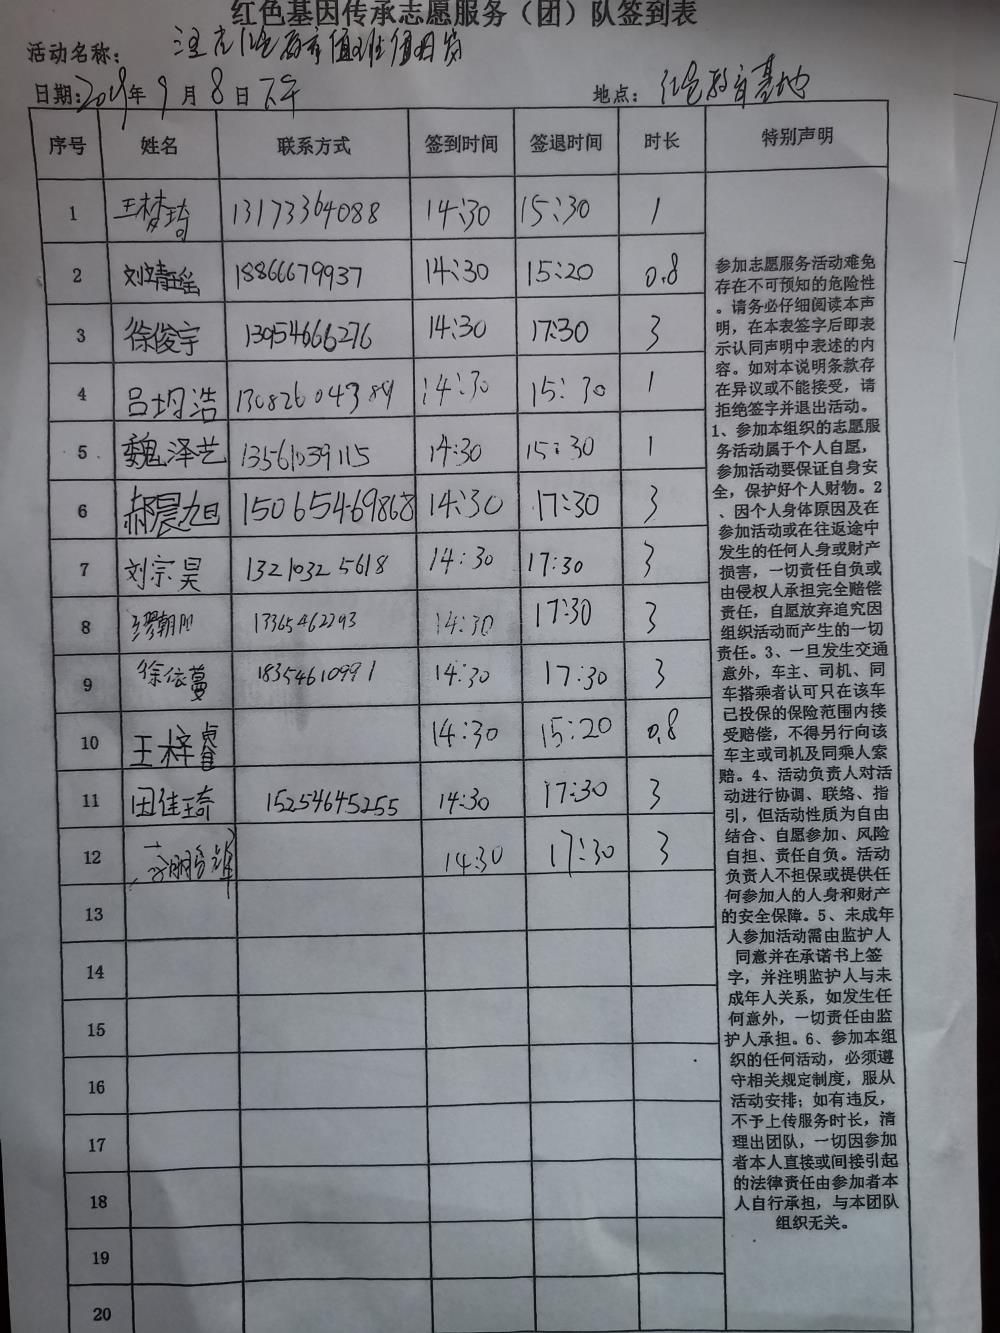 红色基因传承志愿服务（团）队签到表
活动名称：
日期：2019年9月8日下午 地点：红色教育基地
序号 姓名 联系方式 签到时间 签退时间 时长 特别声明
1 王梦琦 13173364088 14:30 15:30 1
2 刘靖瑶 18866679937 14:30 15:20 0.8
3 徐俊宇 13954666276 14:30 17:30 3
4 吕均浩 14:30 15:30 1
5 魏泽艺 13561039115 14:30 15:30 1
6 郝晨旭 15065469868 14:30 17:30 3
7 刘宗昊 13210325618 14:30 17:30 3
8 13365462293 14:30 17:30 3
9 徐依蔓 18354610991 14:30 17:30 3
10 王梓睿 14:30 15:20 0.8
11 田佳琦 15254645255 14:30 17:30 3
12 14:30 17:30 3
13
14
15
16
17
18
19
20
参加志愿服务活动难免
存在不可预知的危险性
。请务必仔细阅读本声
明，在本表签字后即表
示认同声明中表述的内
容。如对本说明条款存
在异议或不能接受，请
拒绝签字并退出活动。
1、参加本组织的志愿服
务活动属于个人自愿，
参加活动要保证自身安
全，保护好个人财物。2
、因个人身体原因及在
参加活动或在往返途中
发生的任何人身或财产
损害，一切责任自负或
由侵权人承担完全赔偿
责任，自愿放弃追究因
组织活动而产生的一切
责任。3、一旦发生交通
意外，车主、司机、同
车搭乘者认可只在该车
已投保的保险范围内接
受赔偿，不得另行向该
车主或司机及同乘人索
赔。4、活动负责人对活
动进行协调、联络、指
引，但活动性质为自由
结合、自愿参加、风险
自担、责任自负。活动
负责人不担保或提供任
何参加人的人身和财产
的安全保障。5、未成年
人参加活动需由监护人
同意并在承诺书上签
字，并注明监护人与未
成年人关系，如发生任
何意外，一切责任由监
护人承担。6、参加本组
织的任何活动，必须遵
守相关规定制度，服从
活动安排；如有违反，
不予上传服务时长，清
理出团队，一切因参加
者本人直接或间接引起
的法律责任由参加者本
人自行承担，与本团队
组织无关。